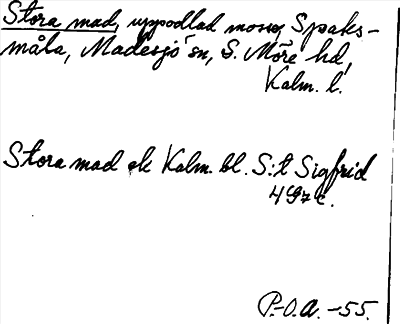 Stora mad, uppodlad mosse, Spaks-
måla, Madesjö sn, S. Möre hd,
Kalm. l.
Stora mad ek Kalm. bl. S:t Sigfrid
4 G7c.
P.-O.A. -55.